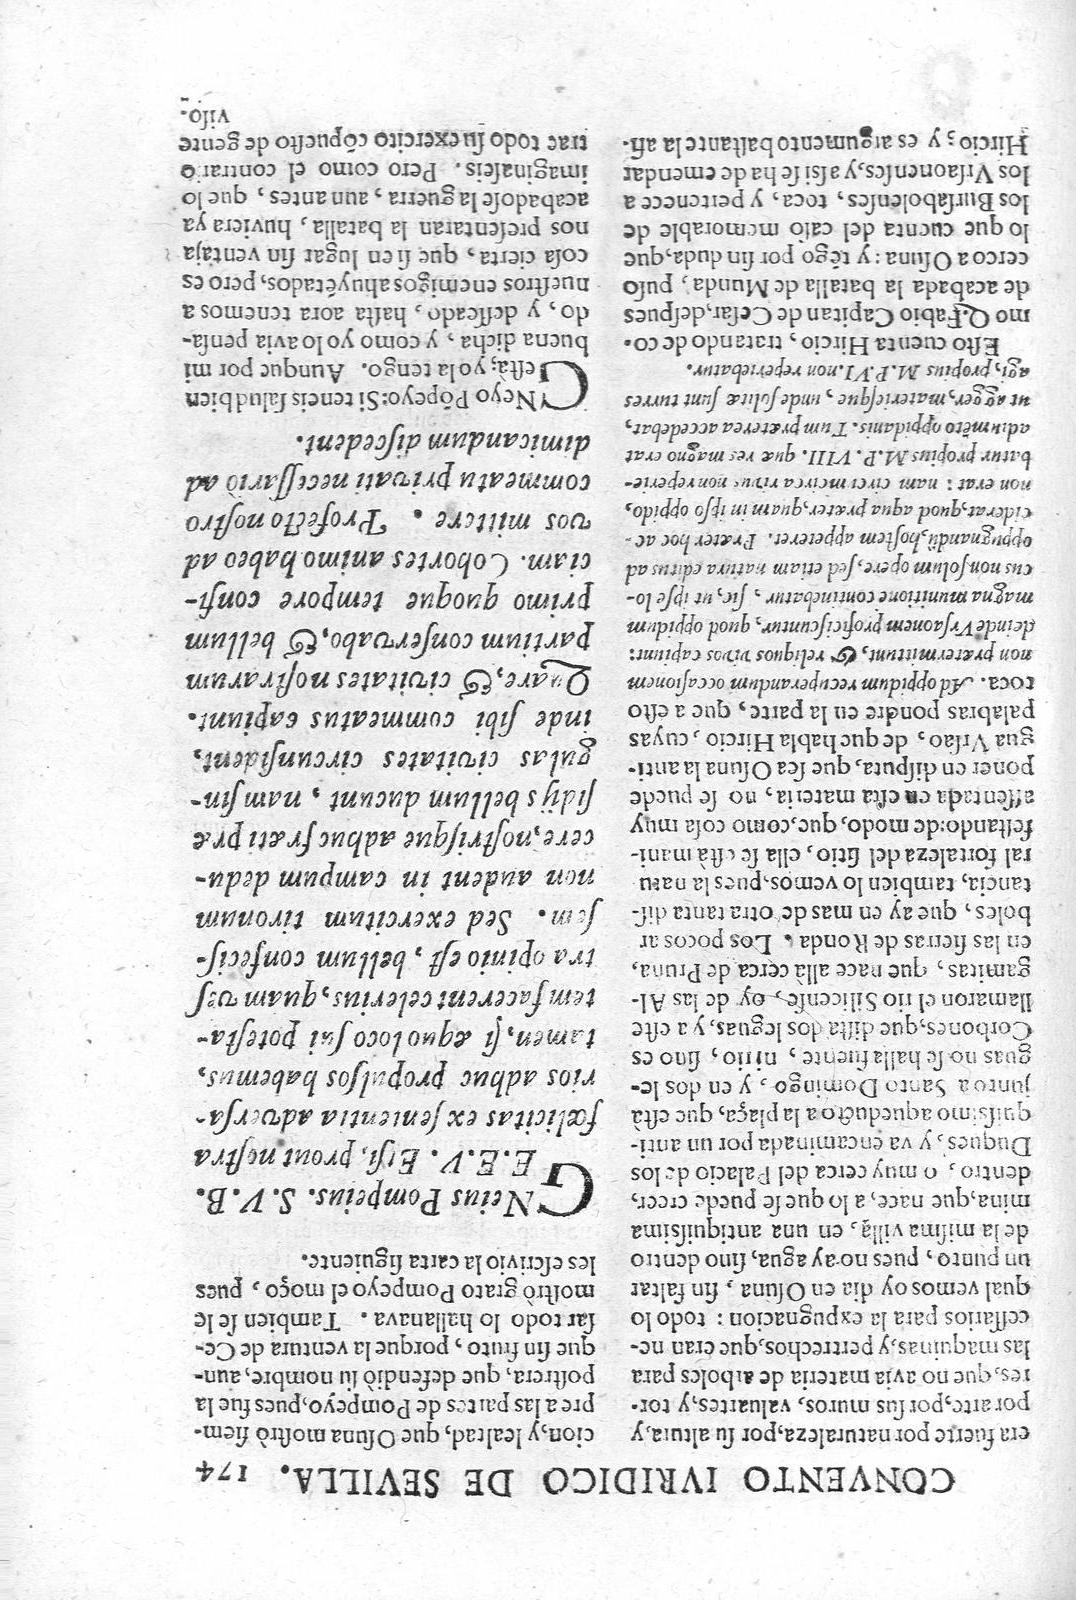 CONVENTO IVRIDICO DE SEVILLA. 174
era fuerte por naturaleza, por su altura, y
por arte, por sus muros, valuartes, y tor-
res, que no avia materia de arboles para
las maquinas, y pertrechos, que eran ne-
cessarios para la expugnacion: todo lo
qual vemos oy dia en Osuna, sin faltar
un punto, pues no ay agua, sino dentro
de la misma villa, en una antiquissima
mina, que nace, a lo que se puede creer,
dentro, o muy cerca del Palacio de los
Duques, y va encaminada por un anti-
quissimo aqueducto a la plaça, que està
junto a Santo Domingo, y en dos le-
guas no se halla fuente, ni rio, sino es
Corbones, que dista dos leguas, y a este
llamaron el rio Silicense, oy de las Al-
gamitas, que nace allà cerca de Pruna,
en las sierras de Ronda. Los pocos ar
boles, que ay en mas de otra tanta dis-
tancia, tambien lo vemos, pues la natu
ral fortaleza del sitio, ella se està mani-
festando: de modo, que, como cosa muy
assentada en esta materia, no se puede
poner en disputa, que sea Osuna la anti-
gua Vrsao, de que habla Hircio, cuyas
palabras pondre en la parte, que a esto
toca. Ad oppidum recuperandum occasionem
non prætermittunt, & reliquos vivos capiunt:
deinde Vrsaonem proficiscuntur, quod oppidum
magna munitione continebatur, sic, ut ipse lo-
cus non solum opere, sed etiam natura editus ad
oppugnandũ, hostem appeteret. Præter hoc ac-
ciderat, quod aqua præter, quam in ipso oppido,
non erat: nam circumcirca rivus non reperie-
batur propius M. P. VIII. quæ res magno erat
adiumẽto oppidanis. Tum præterea accedebat,
ut agger, materiesque, unde solitæ sunt turres
agi, propius M. P. VI. non reperiebatur.
Esto cuenta Hircio, tratando de co-
mo Q. Fabio Capitan de Cesar, despues
de acabada la batalla de Munda, puso
cerco a Osuna: y tẽgo por sin duda, que
lo que cuenta del caso memorable de
los Bursabolenses, toca, y pertenece a
los Vrsaonenses, y assi se ha de emendar
Hircio; y es argumento bastante la afi-
cion, y lealtad, que Osuna mostrò siem-
pre a las partes de Pompeyo, pues fue la
postrera, que defendiò su nombre, aun-
que sin fruto, porque la ventura de Ce-
sar todo lo hallanava. Tambien se le
mostrò grato Pompeyo el moço, pues
les escrivio la carta siguiente.
GNeius Pompeius. S. V. B.
E. E. V. Etsi, prout nostra
fœlicitas ex sententia adversa-
rios adhuc propulsos habemus,
tamen, si æquo loco sui potesta-
tem facerent celerius, quam ves
tra opinio est, bellum confecis-
sem. Sed exercitum tironum
non audent in campum dedu-
cere, nostrisque adhuc fræti præ
sidijs bellum ducunt, nam sin-
gulas civitates circunsident,
inde sibi commeatus capiunt.
Quare, & civitates nostrarum
partium conservabo, & bellum
primo quoque tempore confi-
ciam. Cohortes animo habeo ad
vos mittere. Profecto nostro
commeatu privati necessariò ad
dimicandum discedent.
GNeyo Põpeyo: Si teneis salud bien
està; yo la tengo. Aunque por mi
buena dicha, y como yo lo avia pensa-
do, y desseado, hasta aora tenemos a
nuestros enemigos ahuyẽtados, pero es
cosa cierta, que si en lugar sin ventaja
nos presentaran la batalla, huviera ya
acabadose la guerra, aun antes, que lo
imaginaseis. Pero como el contrario
trae todo su exercito cõpuesto de gente
viso-